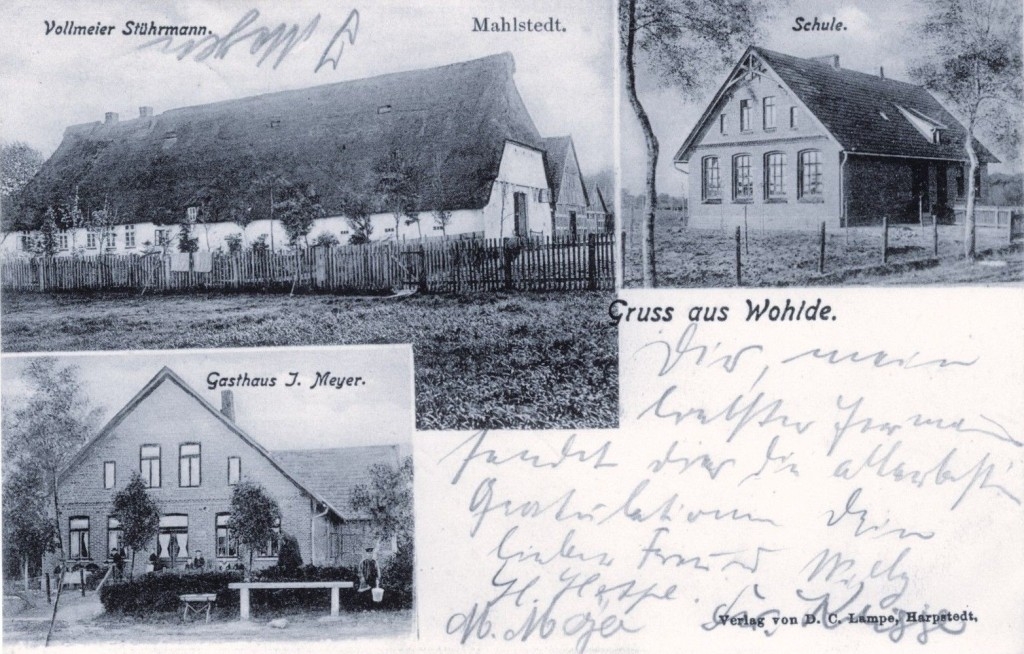 Vollmeier Stührmann.
Mahlstedt.
Schule.
Gasthaus J. Meyer.
Gruss aus Wohlde.
Dir, mein
liebster Herman
sendet dir die allerbesten
Gratulation Dein
lieber Freund Willy
H.
M. Meyer
Verlag von D. C. Lampe, Harpstedt,